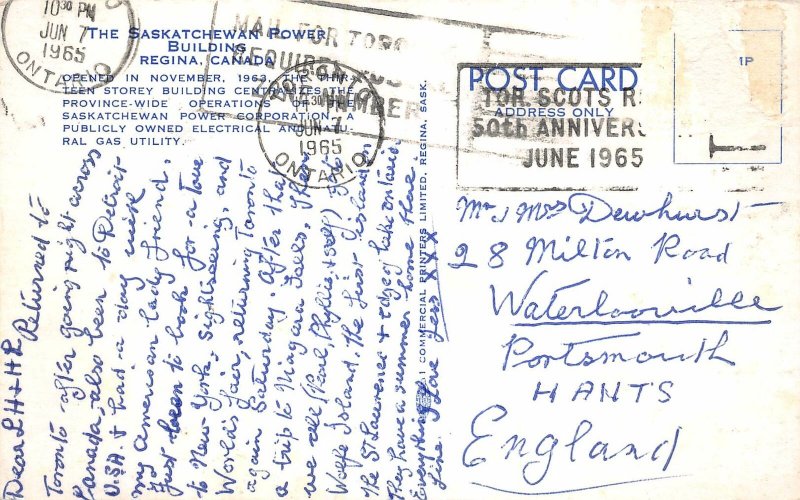 10 30 PM
JUN 7
1965
ONTARIO
THE SASKATCHEWAN POWER
BUILDING
REGINA, CANADA
OPENED IN NOVEMBER, 1963, THE THIR-
TEEN STOREY BUILDING CENTRALIZES THE
PROVINCE-WIDE OPERATIONS OF THE
SASKATCHEWAN POWER CORPORATION, A
PUBLICLY OWNED ELECTRICAL AND NATU-
RAL GAS UTILITY.
MAIL FOR TORO
REQUIRES POS
NUMBER
JUN 7
1965
ONTARIO
Dear L H + H R
Returned to
Toronto after going right across
Canada, also been to Detroit
U.S.A. & had a day with
my American lady friend.
Just been to book for a Tour
to New York, Sightseeing, and
World's fair, returning Toronto
again Saturday. After that
a trip to Niagara Falls, then
we all (Pearl, Phyllis & self) go to
Wolfe Island, the first island in
the St Lawrence & edge of lake ontario.
They have a summer home there.
Everything
fine. Love Jess X X X
COMMERCIAL PRINTERS LIMITED, REGINA, SASK.
POST CARD
ADDRESS ONLY
TOR. SCOTS R
50th ANNIVERS
JUNE 1965
Mr & Mrs Dewhurst
28 Milton Road
Waterlooville
Portsmouth
HANTS
England